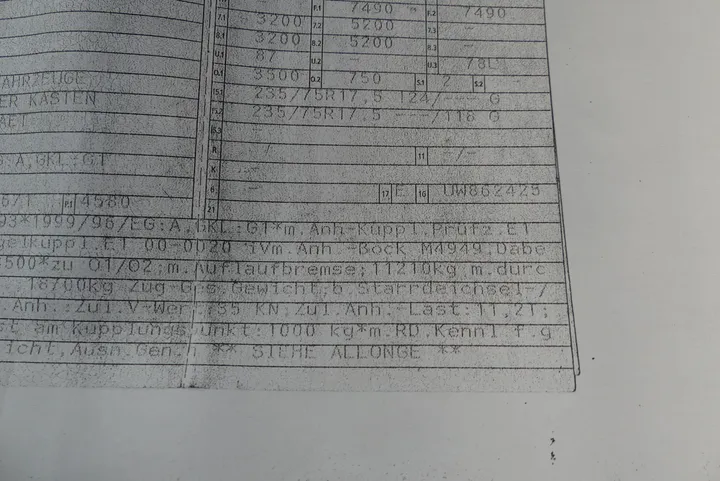 F.1 7490 F.2 7490
7.1 3200 7.2 5200 7.3 -
8.1 3200 8.2 5200 8.3 -
U.1 87 U.2 - U.3 78
AHRZEUGE O.1 3500 O.2 750 S.1 2 S.2 -
ER KASTEN 15.1 235/75R17,5 124/--- G
15.2 235/75R17,5 ---/118 G
15.3 -
:A,GKL:G1 R -/- 11 -/-
K
4580 6 - 17 E 16 UW862425
21
93*1999/96/EG:A,GKL:G1*m.Anh-Kuppl.Prüfz.E1
gelkuppl.E1 00-0020 iVm.Anh.-Bock M4949,Dabe
500*zu O1/O2:m.Auflaufbremse;11210kg m.durc
18700kg Zug-Ges.Gewicht;b.Starrdeichsel-/
Anh.:Zul.V-Wert:35 KN;Zul.Anh.-Last:11,21;
st am Kupplungspunkt:1000 kg*m.RD.Kennl f.g
icht,Ausn.Gen.n ** SIEHE ALLONGE **